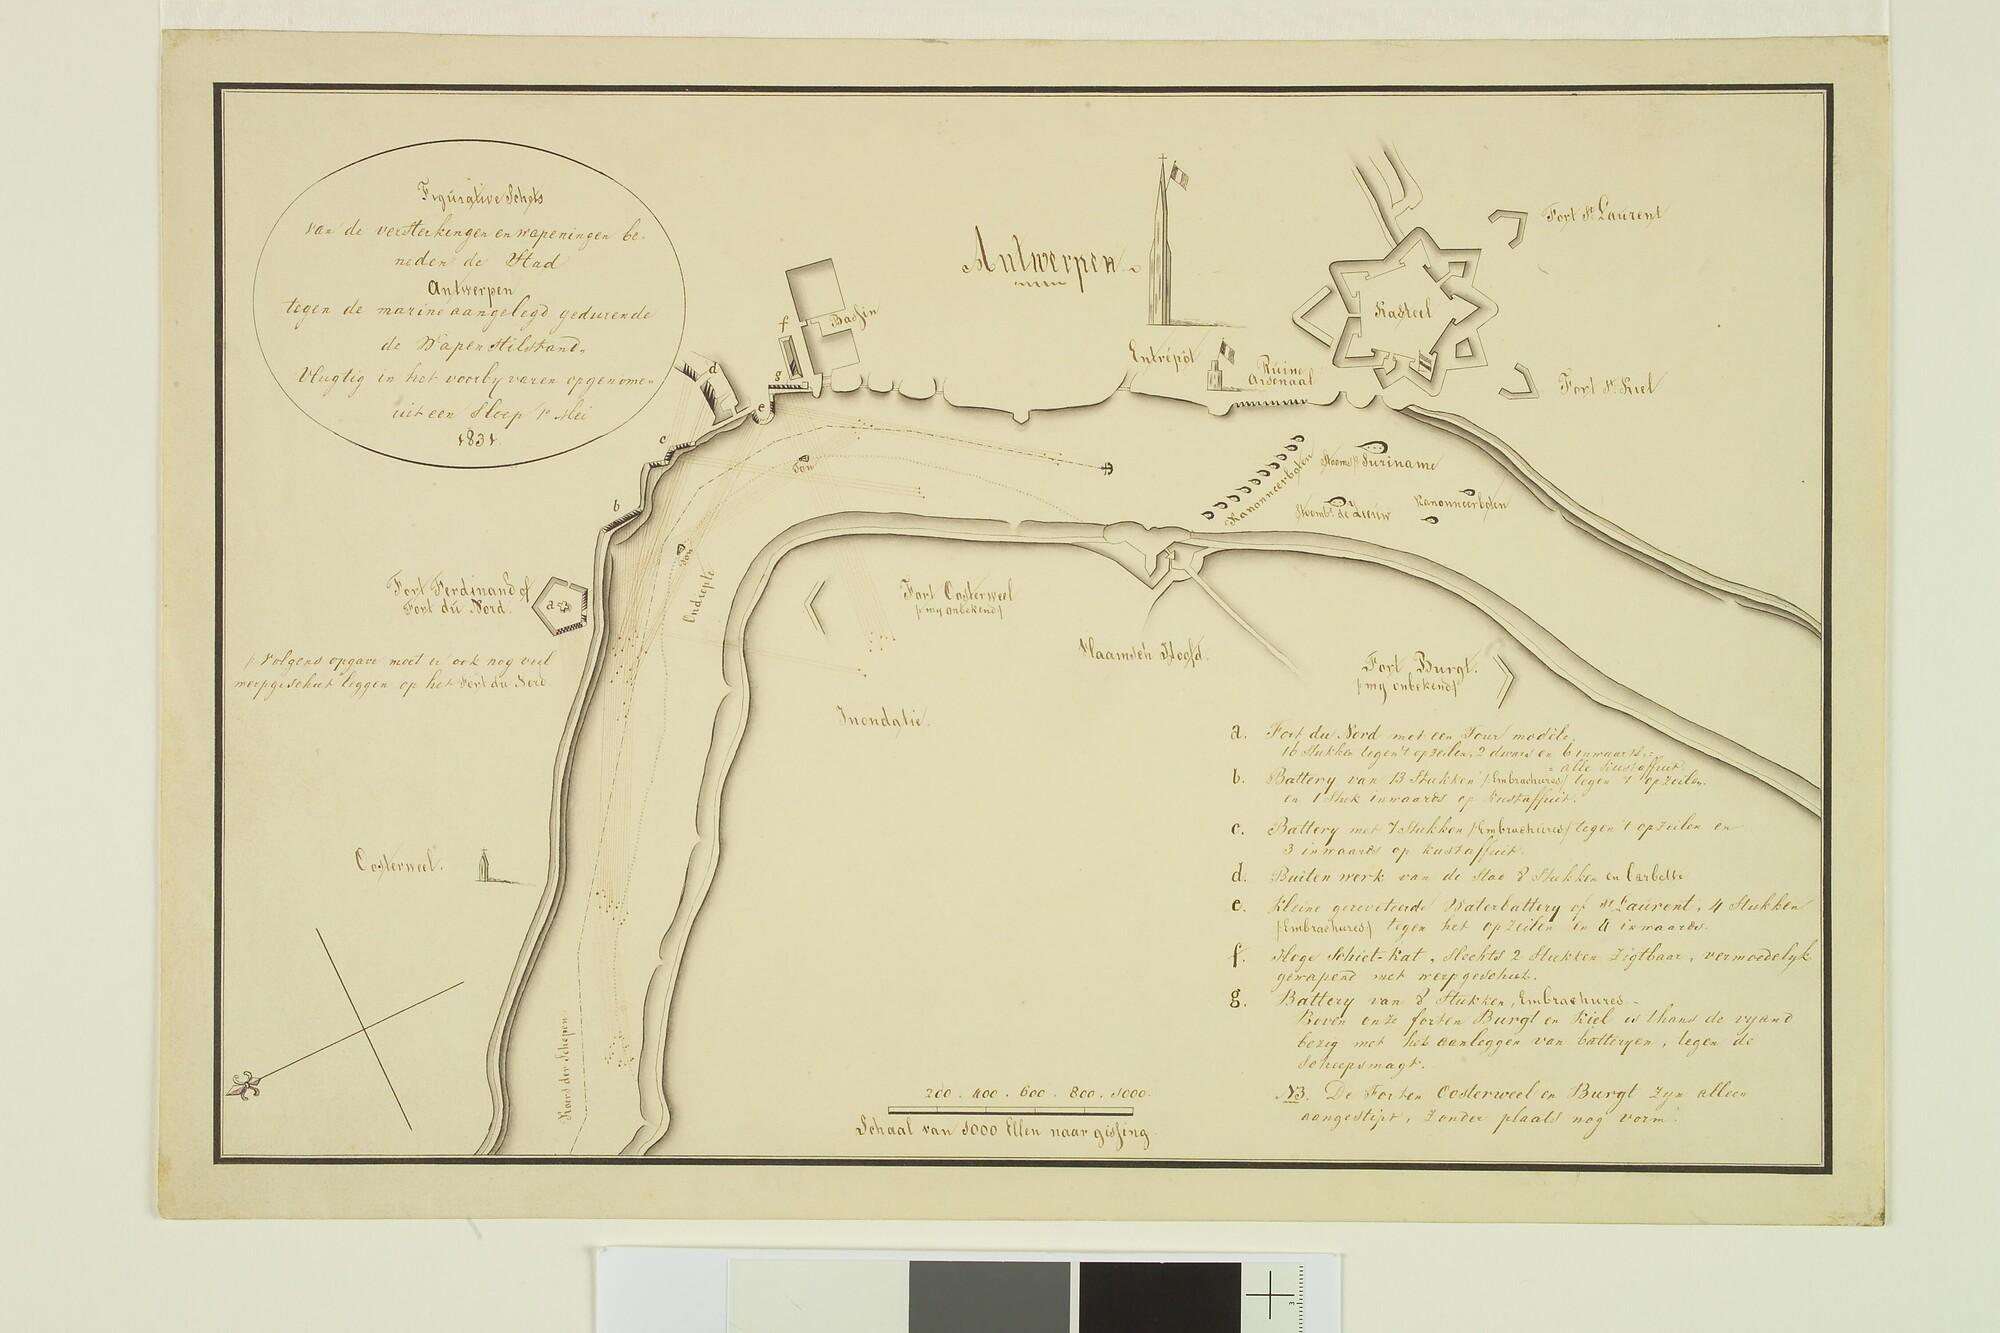 Figurative Schets
van de versterkingen en wapeningen be-
neden de Stad
Antwerpen
tegen de marine aangelegd gedurende
de Wapenstilstand.
Vlugtig in het voorby varen opgenomen
uit een Sloep 1e Mei
1831.
Antwerpen
Bassin
Entrépôt
Ruine
Arsenaal
Kasteel
Fort St. Laurent
Fort St. Kiel
a
b
c
d
e
f
g
Ton
Ton
Ondiepte
Kanonneerboten
Stoomb. Suriname
Stoombt. de Leeuw
Kanonneerboten
Fort Ferdinand of
Fort du Nord.
Volgens opgave moet er ook nog veel
werpgeschut leggen op het Fort du Nord
Fort Oosterweel
/:my onbekend:/
Vlaamsch Hoofd.
Fort Burgt.
/:my onbekend:/
Inondatie.
Oosterweel.
Koers der Schepen
a. Fort du Nord met een Tour modèle,
16 Stukken tegen 't opzeilen, 2 dwars en 6 inwaarts,
alle Kustaffuit.
b. Battery van 13 Stukken /:Embrachures:/ tegen 't opzeilen.
en 1 Stuk inwaards op Kustaffuit.
c. Battery met 7 Stukken /:Embrachures:/ tegen 't opzeilen en
3 inwaards op Kustaffuit.
d. Buiten werk van de Stad 8 Stukken en barbette
e. Kleine gerevêteerde Waterbattery of St. Laurent, 4 Stukken
/:Embrachures:/ tegen het opzeilen en 4 inwaards.
f. Hoge Schiet-kat, Slechts 2 Stukken Zigtbaar, vermoedelyk
gewapend met werpgeschut.
g. Battery van 8 Stukken, Embrachures.
Boven onze forten Burgt en Kiel is thans de vyand
bezig met het aanleggen van batteryen, tegen de
Scheepsmagt.
NB. De Forten Oosterweel en Burgt zyn alleen
aangestipt, Zonder plaats nog vorm.
200. 400. 600. 800. 1000.
Schaal van 1000 Ellen naar gissing